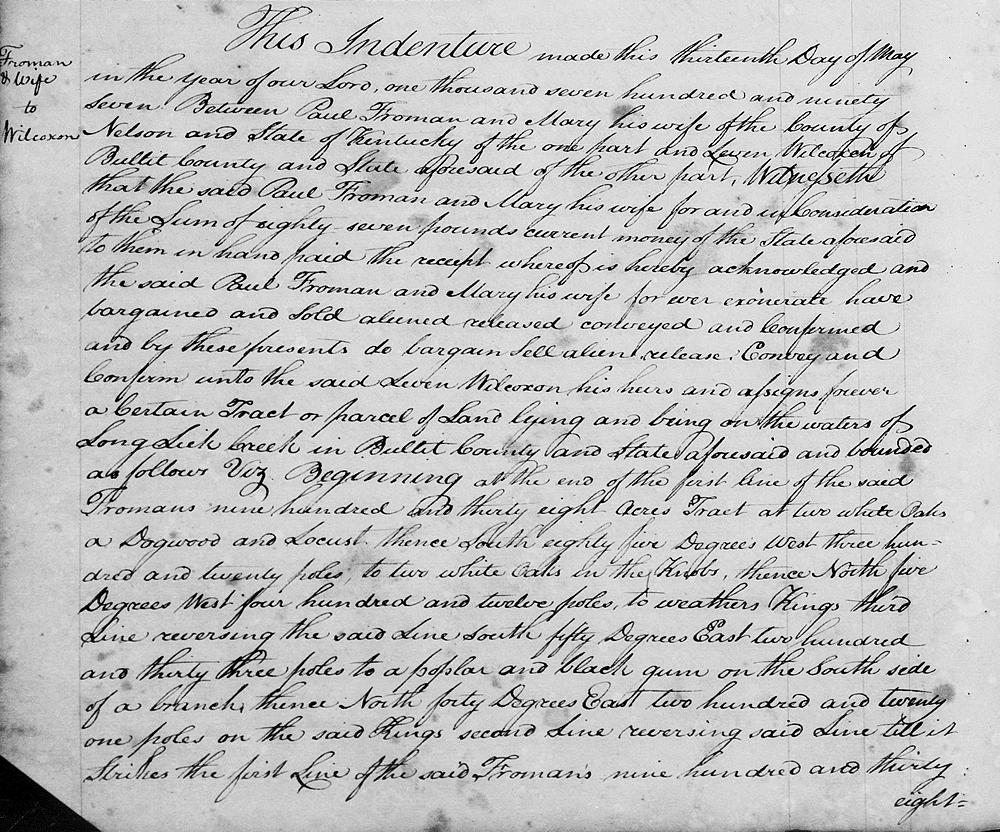 Froman
& Wife
to
Wilcoxon
This Indenture made this thirteenth Day of May
in the year of our Lord, one thousand seven hundred and ninety
seven Between Paul Froman and Mary his wife of the County of
Nelson and State of Kentucky of the one part and Leven Wilcoxen of
Bullit County and State aforesaid of the other part, Witnesseth
that the said Paul Froman and Mary his wife for and in Consideration
of the Sum of eighty seven pounds current money of the State aforesaid
to them in hand paid the receipt whereof is hereby acknowledged and
the said Paul Froman and Mary his wife for ever exonerate have
bargained and Sold aliened released conveyed and Confirmed
and by these presents do bargain Sell alien release Convey and
Confirm unto the said Leven Wilcoxon his heirs and assigns forever
a Certain Tract or parcel of Land lying and being on the waters of
Long Lick Creek in Bullit County and State aforesaid and bounded
as follows Viz. Beginning at the end of the first line of the said
Fromans nine hundred and thirty eight Acres Tract at two white Oaks
a Dogwood and Locust thence South eighty five Degrees West three hun=
dred and twenty poles, to two white Oaks in the Knobs, thence North five
Degrees West four hundred and twelve poles, to weathers Kings third
Line reversing the said Line South fifty Degrees East two hundred
and thirty three poles to a poplar and black gum on the South side
of a branch, thence North forty Degrees East two hundred and twenty
one poles on the said Kings second Line reversing said Line till it
Strikes the first Line of the said Froman's nine hundred and thirty
eight=